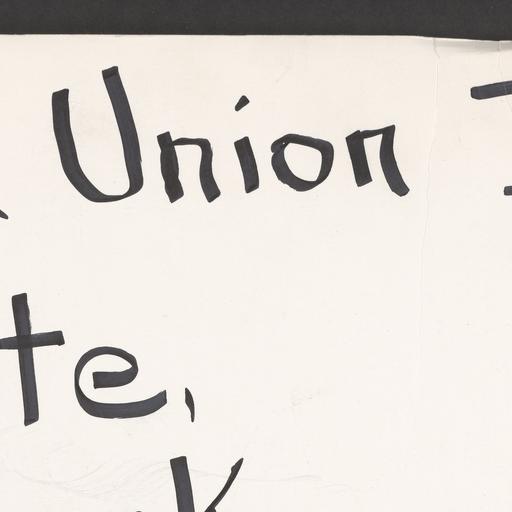 Union
te,
k